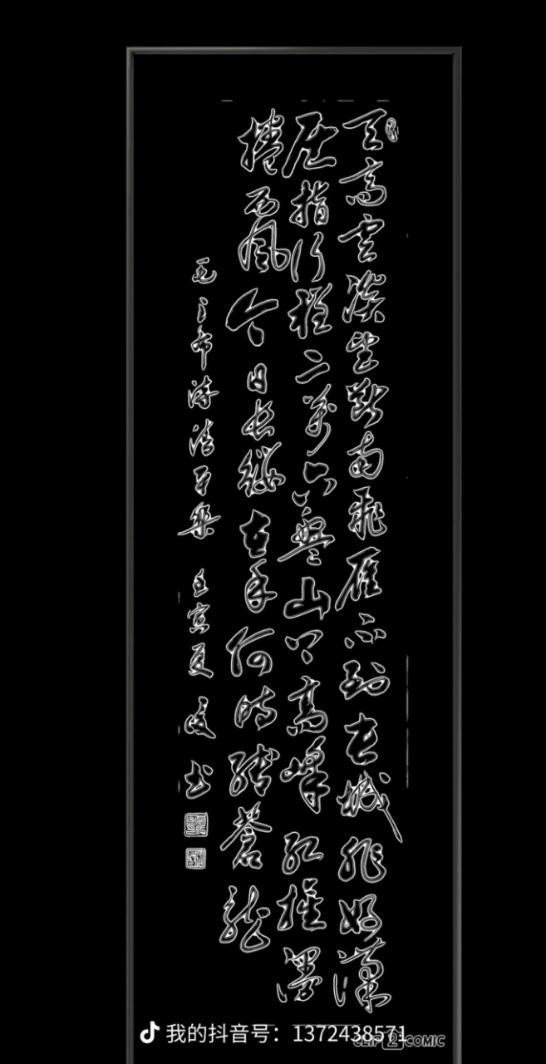 天高雲淡望斷南飛雁不到長城非好漢
屈指行程二萬六盤山上高峰紅旗漫
捲西風今日長纓在手何時縛蒼龍
毛主席詩清平樂 壬寅夏 書
我的抖音号：1372438571
CLIP2COMIC